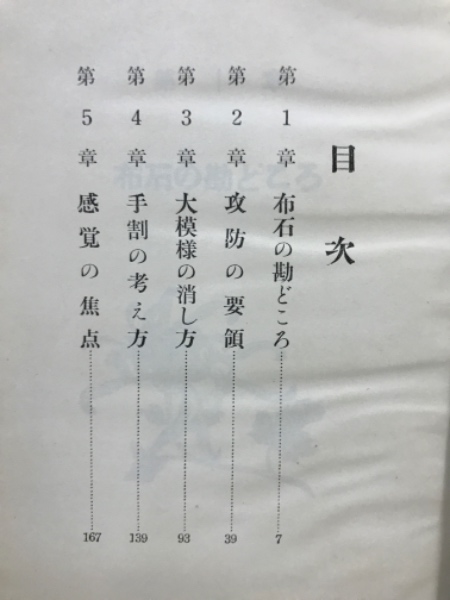 目次
第1章 布石の勘どころ……7
第2章 攻防の要領……39
第3章 大模様の消し方……93
第4章 手割の考え方……139
第5章 感覚の焦点……167